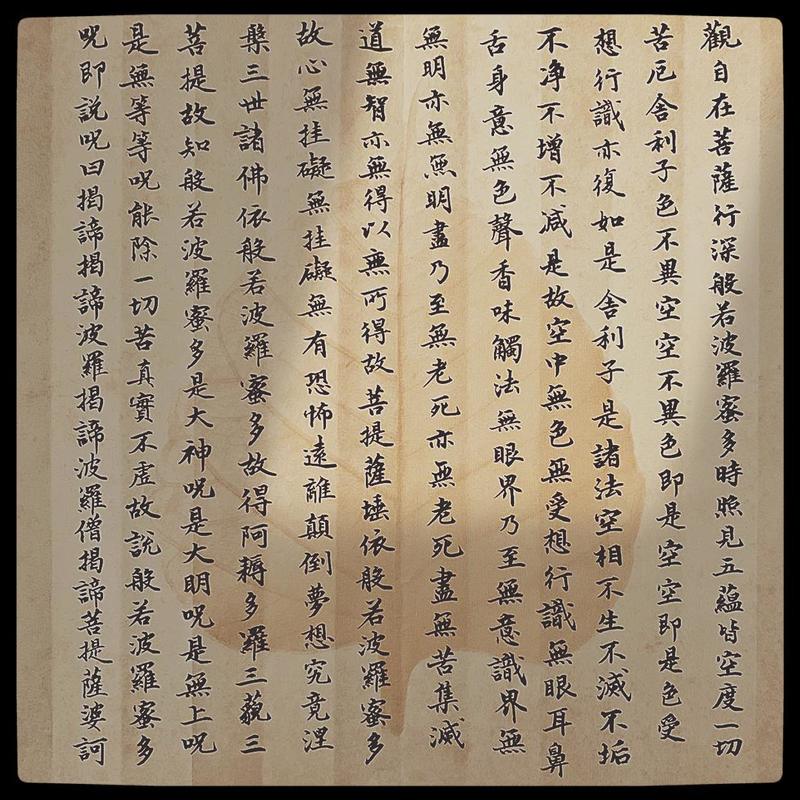 觀自在菩薩行深般若波羅蜜多時照見五蘊皆空度一切
苦厄舍利子色不異空空不異色即是空空即是色受
想行識亦復如是舍利子是諸法空相不生不滅不垢
不净不增不減是故空中無色無受想行識無眼耳鼻
舌身意無色聲香味觸法無眼界乃至無意識界無
無明亦無無明盡乃至無老死亦無老死盡無苦集滅
道無智亦無得以無所得故菩提薩埵依般若波羅蜜多
故心無挂礙無挂礙無有恐怖遠離顛倒夢想究竟涅
槃三世諸佛依般若波羅蜜多故得阿耨多羅三藐三
菩提故知般若波羅蜜多是大神呪是大明呪是無上呪
是無等等呪能除一切苦真實不虛故說般若波羅蜜多
呪即說呪曰揭諦揭諦波羅揭諦波羅僧揭諦菩提薩婆訶